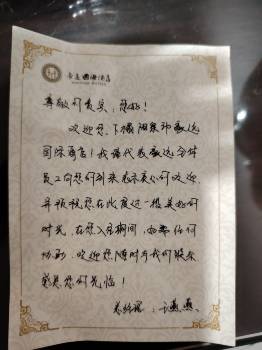 国际酒店
尊敬的贵宾：您好！
欢迎您下榻阳泉
国际酒店！我谨代表 全体
员工向您的到来表示衷心的欢迎，
并预祝您在此度过一段美好的
时光，在您入住期间，如需任何
协助，欢迎您随时与我们联系
感恩您的光临！
总经理：